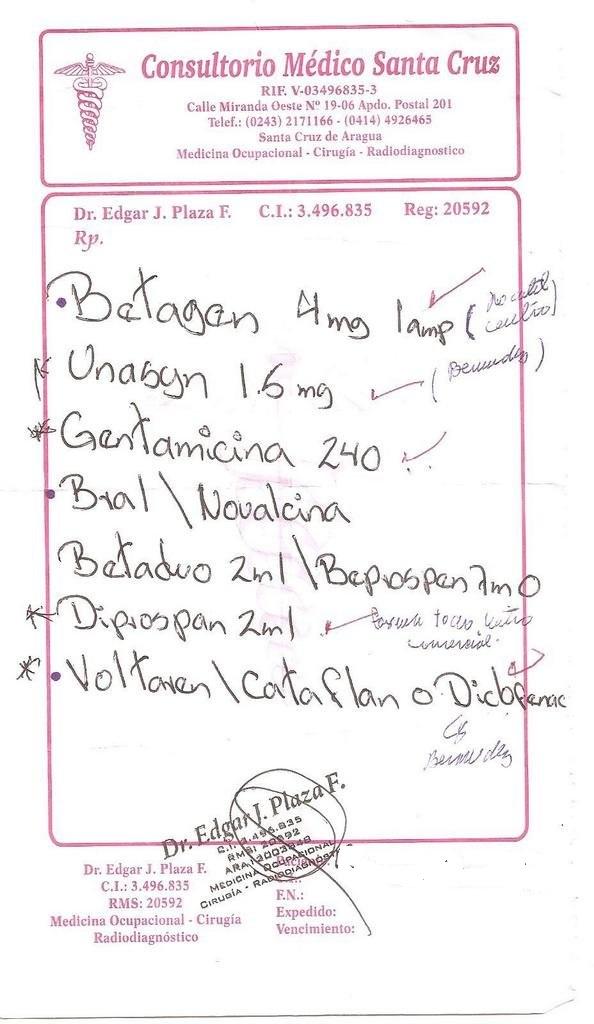 Consultorio Médico Santa Cruz
RIF. V-03496835-3
Calle Miranda Oeste Nº 19-06 Apdo. Postal 201
Telef.: (0243) 2171166 - (0414) 4926465
Santa Cruz de Aragua
Medicina Ocupacional - Cirugía - Radiodiagnostico
Dr. Edgar J. Plaza F. C.I.: 3.496.835 Reg: 20592
Rp.
Betagen 4mg 1amp (
Unasyn 1.5 mg (Bermudez)
Gentamicina 240
Bral \ Novalcina
Betaduo 2ml \ Beprospen
Diprospan 2ml
comercial.
Voltaren \ Cataflan o Diclofenac
Bermudez
Dr. Edgar J. Plaza F.
C.I. 3.496.835
RMS: 20592
MEDICINA OCUPACIONAL
CIRUGIA - RADIODIAGNOSTI
Dr. Edgar J. Plaza F.
C.I.: 3.496.835
RMS: 20592
Medicina Ocupacional - Cirugía
Radiodiagnóstico
F.N.:
Expedido:
Vencimiento: